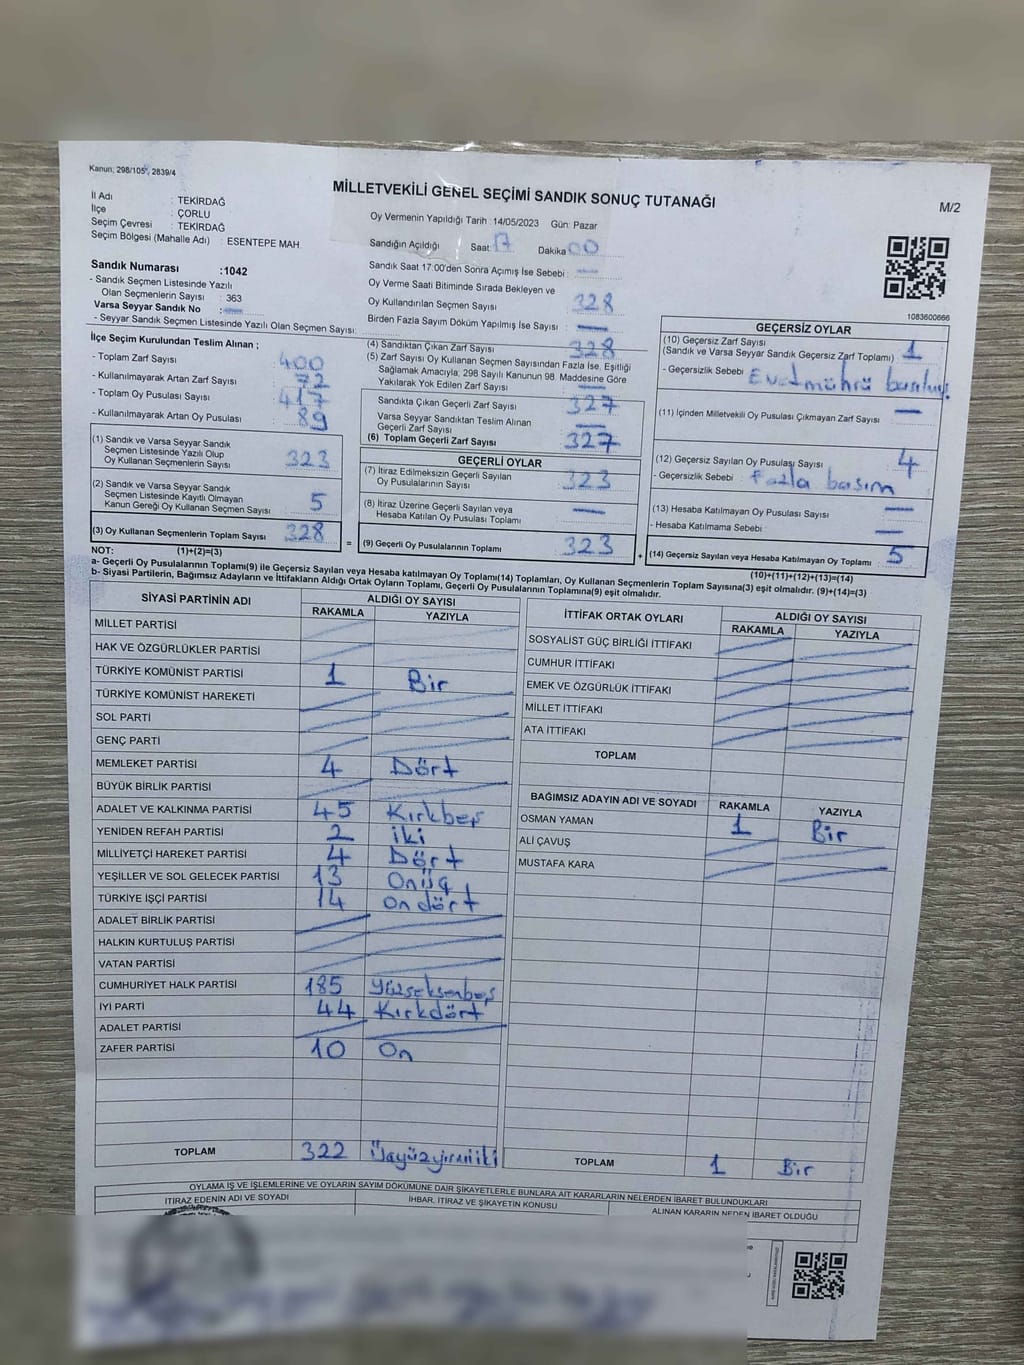 Kanun; 298/105², 2839/4
MİLLETVEKİLİ GENEL SEÇİMİ SANDIK SONUÇ TUTANAĞI
M/2
İl Adı : TEKİRDAĞ
İlçe : ÇORLU
Seçim Çevresi : TEKİRDAĞ
Seçim Bölgesi (Mahalle Adı) : ESENTEPE MAH
Oy Vermenin Yapıldığı Tarih : 14/05/2023 Gün: Pazar
Sandığın Açıldığı Saat: 17 Dakika 00
Sandık Saat 17:00'den Sonra Açımış İse Sebebi : —
Oy Verme Saati Bitiminde Sırada Bekleyen ve
Oy Kullandırılan Seçmen Sayısı : 328
Birden Fazla Sayım Döküm Yapılmış İse Sayısı : —
Sandık Numarası :1042
- Sandık Seçmen Listesinde Yazılı
Olan Seçmenlerin Sayısı : 363
Varsa Seyyar Sandık No : —
- Seyyar Sandık Seçmen Listesinde Yazılı Olan Seçmen Sayısı:
1083600666
İlçe Seçim Kurulundan Teslim Alınan ;
- Toplam Zarf Sayısı : 400
- Kullanılmayarak Artan Zarf Sayısı : 72
- Toplam Oy Pusulası Sayısı : 417
- Kullanılmayarak Artan Oy Pusulası : 89
(1) Sandık ve Varsa Seyyar Sandık
Seçmen Listesinde Yazılı Olup
Oy Kullanan Seçmenlerin Sayısı : 323
(2) Sandık ve Varsa Seyyar Sandık
Seçmen Listesinde Kayıtlı Olmayan
Kanun Gereği Oy Kullanan Seçmen Sayısı : 5
(3) Oy Kullanan Seçmenlerin Toplam Sayısı : 328
(1)+(2)=(3)
(4) Sandıktan Çıkan Zarf Sayısı : 328
(5) Zarf Sayısı Oy Kullanan Seçmen Sayısından Fazla İse, Eşitliği
Sağlamak Amacıyla; 298 Sayılı Kanunun 98. Maddesine Göre
Yakılarak Yok Edilen Zarf Sayısı : —
Sandıkta Çıkan Geçerli Zarf Sayısı : 327
Varsa Seyyar Sandıktan Teslim Alınan
Geçerli Zarf Sayısı : —
(6) Toplam Geçerli Zarf Sayısı : 327
GEÇERLİ OYLAR
(7) İtiraz Edilmeksizin Geçerli Sayılan
Oy Pusulalarının Sayısı : 323
(8) İtiraz Üzerine Geçerli Sayılan veya
Hesaba Katılan Oy Pusulası Toplamı : —
= (9) Geçerli Oy Pusulalarının Toplamı : 323 +
GEÇERSİZ OYLAR
(10) Geçersiz Zarf Sayısı
(Sandık ve Varsa Seyyar Sandık Geçersiz Zarf Toplamı) : 1
- Geçersizlik Sebebi : Evet mührü basılmış.
(11) İçinden Milletvekili Oy Pusulası Çıkmayan Zarf Sayısı : —
(12) Geçersiz Sayılan Oy Pusulası Sayısı : 4
- Geçersizlik Sebebi : Fazla basım
(13) Hesaba Katılmayan Oy Pusulası Sayısı : —
- Hesaba Katılmama Sebebi : —
(14) Geçersiz Sayılan veya Hesaba Katılmayan Oy Toplamı : 5
(10)+(11)+(12)+(13)=(14)
NOT:
a- Geçerli Oy Pusulalarının Toplamı(9) ile Geçersiz Sayılan veya Hesaba katılmayan Oy Toplamı(14) Toplamları, Oy Kullanan Seçmenlerin Toplam Sayısına(3) eşit olmalıdır. (9)+(14)=(3)
b- Siyasi Partilerin, Bağımsız Adayların ve İttifakların Aldığı Ortak Oyların Toplamı, Geçerli Oy Pusulalarının Toplamına(9) eşit olmalıdır.
SİYASİ PARTİNİN ADI ALDIĞI OY SAYISI
RAKAMLA YAZIYLA
MİLLET PARTİSİ
HAK VE ÖZGÜRLÜKLER PARTİSİ
TÜRKİYE KOMÜNİST PARTİSİ 1 Bir
TÜRKİYE KOMÜNİST HAREKETİ
SOL PARTİ
GENÇ PARTİ
MEMLEKET PARTİSİ 4 Dört
BÜYÜK BİRLİK PARTİSİ
ADALET VE KALKINMA PARTİSİ 45 Kırkbeş
YENİDEN REFAH PARTİSİ 2 iki
MİLLİYETÇİ HAREKET PARTİSİ 4 Dört
YEŞİLLER VE SOL GELECEK PARTİSİ 13 Onüç
TÜRKİYE İŞÇİ PARTİSİ 14 ondört
ADALET BİRLİK PARTİSİ
HALKIN KURTULUŞ PARTİSİ
VATAN PARTİSİ
CUMHURİYET HALK PARTİSİ 185 Yüzseksenbeş
İYİ PARTİ 44 Kırkdört
ADALET PARTİSİ
ZAFER PARTİSİ 10 On
TOPLAM 322 Üçyüzyirmiiki
İTTİFAK ORTAK OYLARI ALDIĞI OY SAYISI
RAKAMLA YAZIYLA
SOSYALİST GÜÇ BİRLİĞİ İTTİFAKI
CUMHUR İTTİFAKI
EMEK VE ÖZGÜRLÜK İTTİFAKI
MİLLET İTTİFAKI
ATA İTTİFAKI
TOPLAM
BAĞIMSIZ ADAYIN ADI VE SOYADI RAKAMLA YAZIYLA
OSMAN YAMAN 1 Bir
ALİ ÇAVUŞ
MUSTAFA KARA
TOPLAM 1 Bir
OYLAMA İŞ VE İŞLEMLERİNE VE OYLARIN SAYIM DÖKÜMÜNE DAİR ŞİKAYETLERLE BUNLARA AİT KARARLARIN NELERDEN İBARET BULUNDUKLARI
İTİRAZ EDENİN ADI VE SOYADI İHBAR, İTİRAZ VE ŞİKAYETİN KONUSU ALINAN KARARIN NEDEN İBARET OLDUĞU